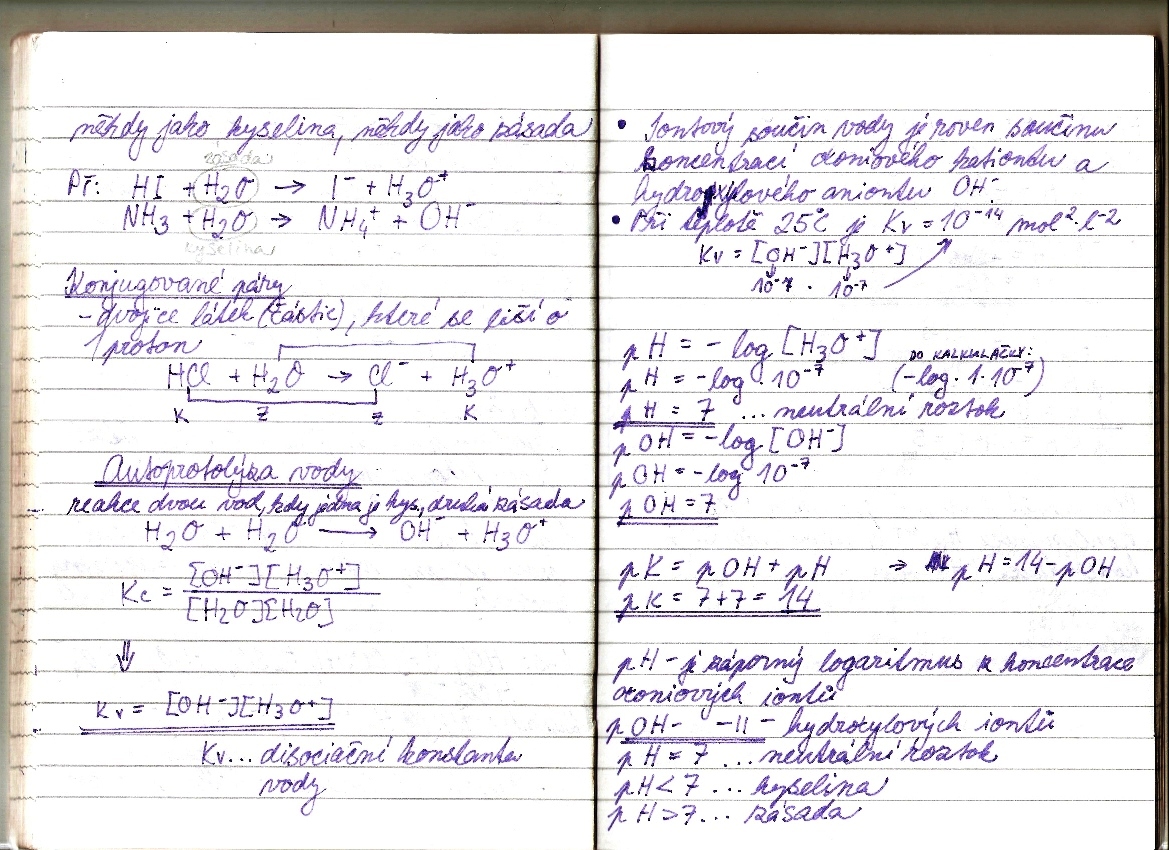 někdy jako kyselina, někdy jako zásada
zásada
Př: HI + H₂O → I⁻ + H₃O⁺
NH₃ + H₂O → NH₄⁺ + OH⁻
kyselina
Konjugované páry
- dvojice látek (částic), které se liší o
1 proton
HCl + H₂O → Cl⁻ + H₃O⁺
K Z Z K
Autoprotolýza vody
reakce dvou vod, kdy jedna je kys., druhá zásada
H₂O + H₂O → OH⁻ + H₃O⁺
Kc = [OH⁻][H₃O⁺]
[H₂O][H₂O]
⇓
Kv = [OH⁻][H₃O⁺]
Kv... disociační konstanta
vody
• Iontový součin vody je roven součinu
koncentrací oxoniového kationtu a
hydroxylového aniontu OH⁻
• Při teplotě 25°C je Kv = 10⁻¹⁴ mol²·l⁻²
Kv = [OH⁻][H₃O⁺]
10⁻⁷ · 10⁻⁷
pH = -log [H₃O⁺]
DO KALKULAČKY:
pH = -log · 10⁻⁷ (-log · 1 · 10⁻⁷)
pH = 7 ... neutrální roztok
pOH = -log [OH⁻]
pOH = -log 10⁻⁷
pOH = 7
pK = pOH + pH → pH = 14 - pOH
pK = 7 + 7 = 14
pH - je záporný logaritmus z koncentrace
oxoniových iontů
pOH - -II- hydroxylových iontů
pH = 7 ... neutrální roztok
pH < 7 ... kyselina
pH > 7 ... zásada